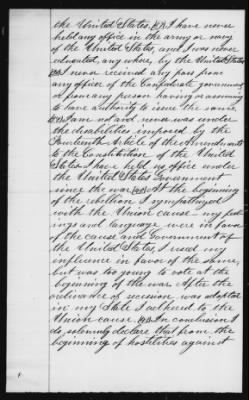 the United States. I have never
held any office in the army or navy
of the United States, and I was never
educated, any where, by the United States
I never received any pass from
any officer of the Confederate government,
or from any person having or assuming
to have authority to issue the same.
I am not and never was under
the disabilities imposed by the
Fourteenth Article of the Amendments
to the Constitution of the United
States. I have held no office under
the United States Government
since the war. At the beginning
of the rebellion I sympathized
with the Union cause my feel
ings and language were in favor
of the cause and Government of
the United States I used my
influence in favor of the same,
but was too young to vote at the
beginning of the war. After the
ordinance of secession was adopted
in my State I adhered to the
Union cause. In conclusion I
do, solemnly declare that from the
beginning of hostilities against